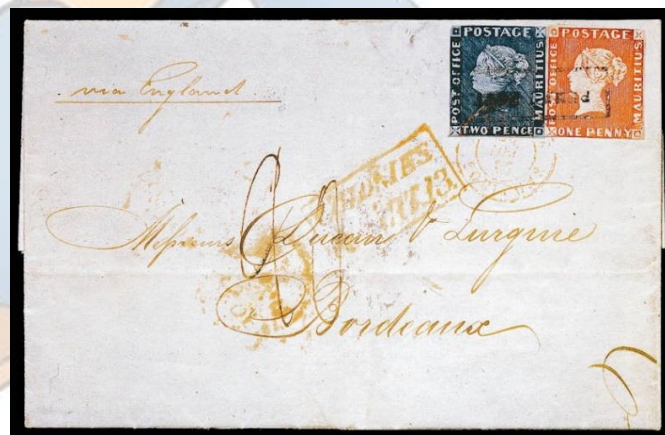 via England
POSTAGE
POST OFFICE
MAURITIUS
TWO PENCE
POSTAGE
POST OFFICE
MAURITIUS
ONE PENNY
Messieurs Ducau & Lurguie
Bordeaux